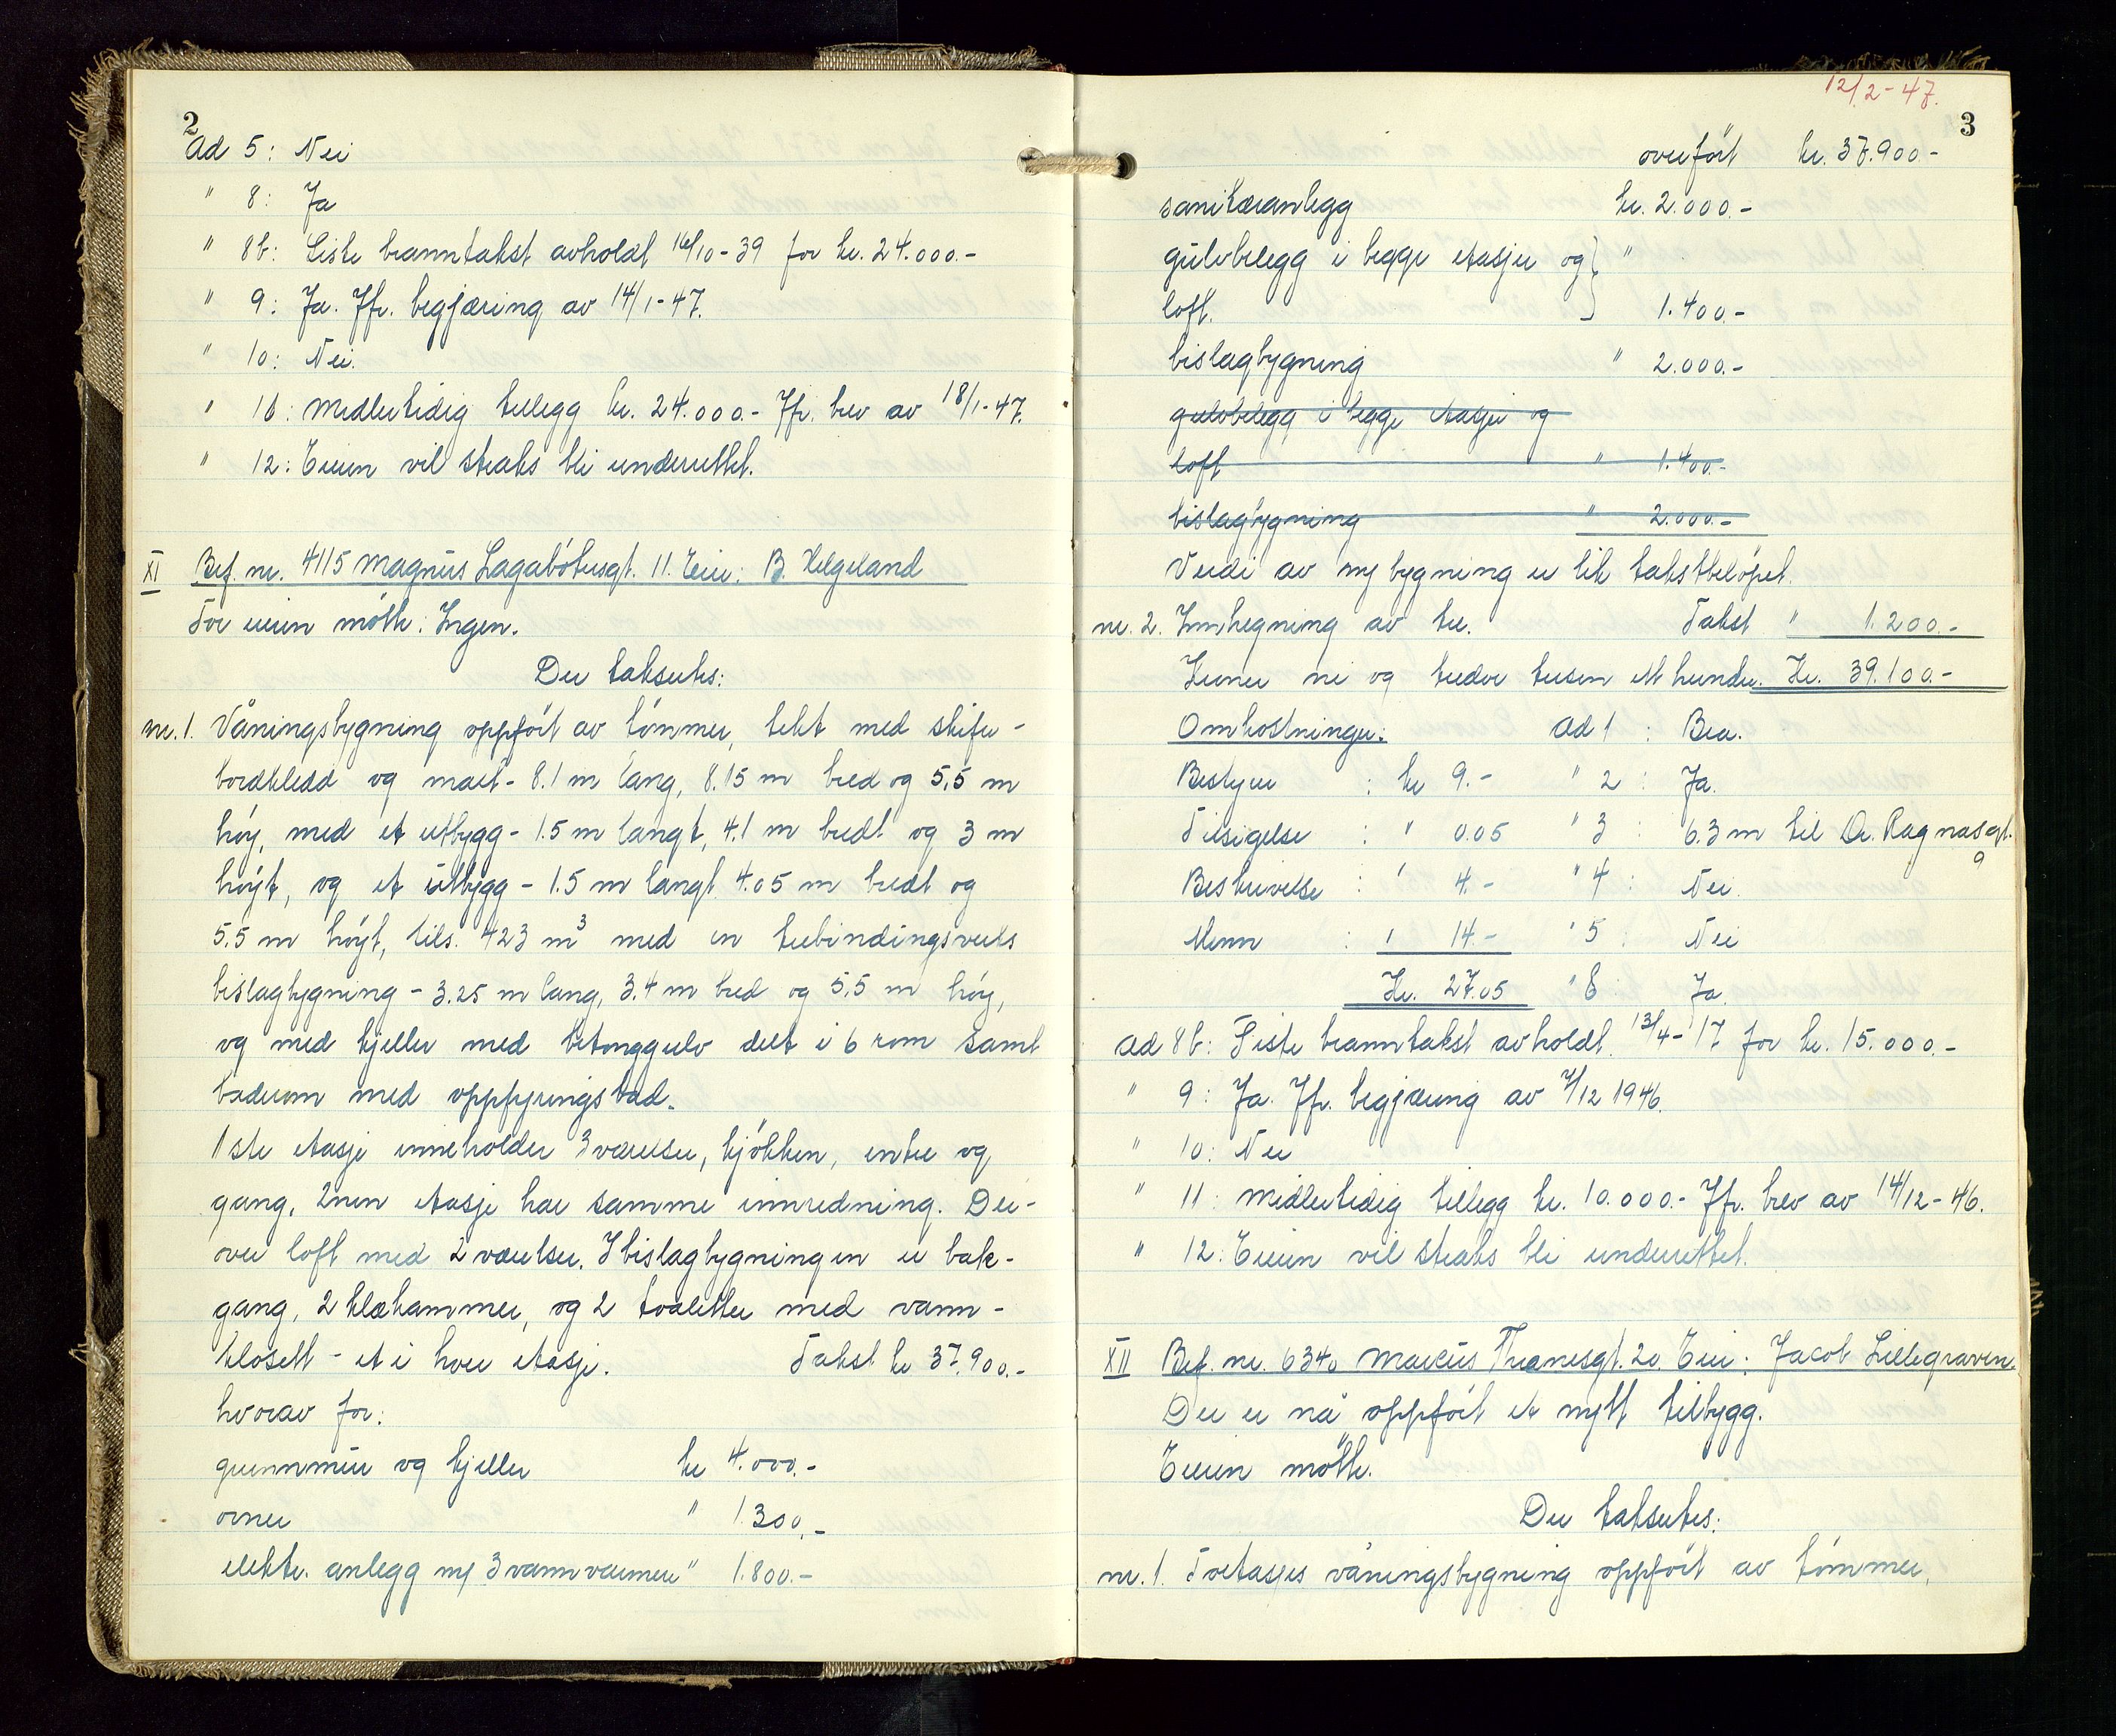 2
Ad 5: Nei
" 8: Ja
" 8b: Siste branntakst avholdt 16/10-39 for kr. 24.000.-
" 9: Ja. Jfr. begjæring av 14/1-47.
" 10: Nei.
" 16: Midlertidig tillegg kr. 24.000.- Jfr. brev av 18/1-47.
" 12: Eieren vil straks bli underrettet.
XI Brf. nr. 4115 Magnus Lagabøtersgt. 11. Eier: B. Helgeland
For eieren møtte: Ingen.
Der takseres:
nr. 1. Våningsbygning oppført av tømmer, tekt med skifer -
bordkledd og malt - 8.1 m lang, 8.15 m bred og 5.5 m
høy, med et utbygg - 1.5 m langt, 4.1 m bredt og 3 m
høyt, og et utbygg - 1.5 m langt 4.05 m bredt og
5.5 m høyt, tils. 423 m³ med en trebindingsverks
bislagbygning - 3.25 m lang, 3.4 m bred og 5.5 m høy,
og med kjeller med betonggulv delt i 6 rom samt
baderom med oppfyringsbad.
1ste etasje inneholder 3 værelser, kjøkken, entre og
gang, 2nen etasje har samme innredning. Der-
over loft med 2 værelser. I bislagbygningen er bak-
gang, 2 klækammer, og 2 toaletter med vann-
klosett - et i hver etasje. Takst kr 37.900.-
hvorav for:
grunnmur og kjeller kr 4.000.-
ovner " 1.300.-
elektr. anlegg m/ 3 vannvarmere " 1.800.-
12/2-47.
3
overført kr. 37.900.-
sanitæranlegg kr. 2.000.-
gulvbelegg i begge etasjer og } "
loft. } 1.400.-
bislagbygning " 2.000.-
gulvbelegg i begge etasjer og
loft " 1.400.-
bislagbygning " 2.000.-
Verdi av ny bygning er lik takstbeløpet.
nr. 2. Innhegning av tre. Takst " 1.200.-
Kroner ni og tredve tusen ett hundre. Kr. 39.100.-
Omkostninger: Ad 1 : Bra.
Bestyrer : kr 9.- " 2 : Ja.
Tilsigelse : " 0.05 " 3 : 6.3 m til Dr. Ragnasgt.
9
Beskrivelse : " 4.- " 4 : Nei.
Menn : " 14.- " 5 : Nei
Kr. 27.05 " 8 Ja.
Ad 8b: Siste branntakst avholdt. 13/4-17 for kr. 15.000.-
" 9: Ja. Jfr. begjæring av 7/12 1946.
" 10: Nei
" 11: Midlertidig tillegg kr. 10.000.- Jfr. brev av 14/12-46.
" 12: Eieren vil straks bli underrettet.
XII Brf. nr. 6340 Marcus Thranesgt. 20. Eier: Jacob Lillegraven.
Der er nå oppført et nytt tilbygg.
Eieren møtte.
Der takseres:
nr. 1. Toetasjes våningsbygning oppført av tømmer,